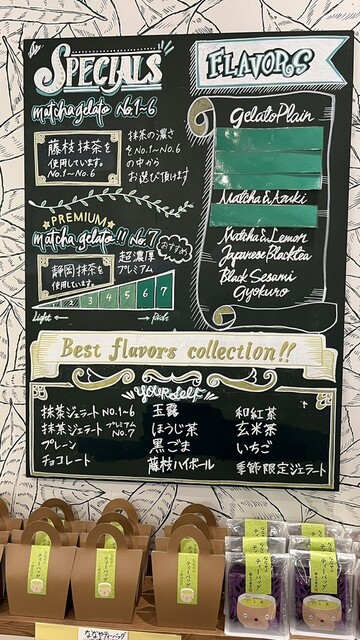 SPECIALS
matcha gelato No.1~6
藤枝抹茶を
使用しています。
No.1~No.6
抹茶の濃さ
をNo.1~No.6
の中から
お選び頂けます
★PREMIUM★
matcha gelato!! No.7
おすすめ
静岡抹茶を
使用しています。
超濃厚
プレミアム
2 3 4 5 6 7
Light Rich
FLAVORS
Gelato Plain
Matcha & Azuki
Matcha & Lemon
Japanese Blacktea
Black Sesami
Gyokuro
Best flavors collection!!
YOURSELF
抹茶ジェラート NO.1~6
抹茶ジェラート プレミアム NO.7
プレーン
チョコレート
玉露
ほうじ茶
黒ごま
藤枝ハイボール
和紅茶
玄米茶
いちご
季節限定ジェラート
ティーバッグ
ティーバッグ
ティーバッグ
ティーバッグ
ティーバッグ
ななやティーバッグ